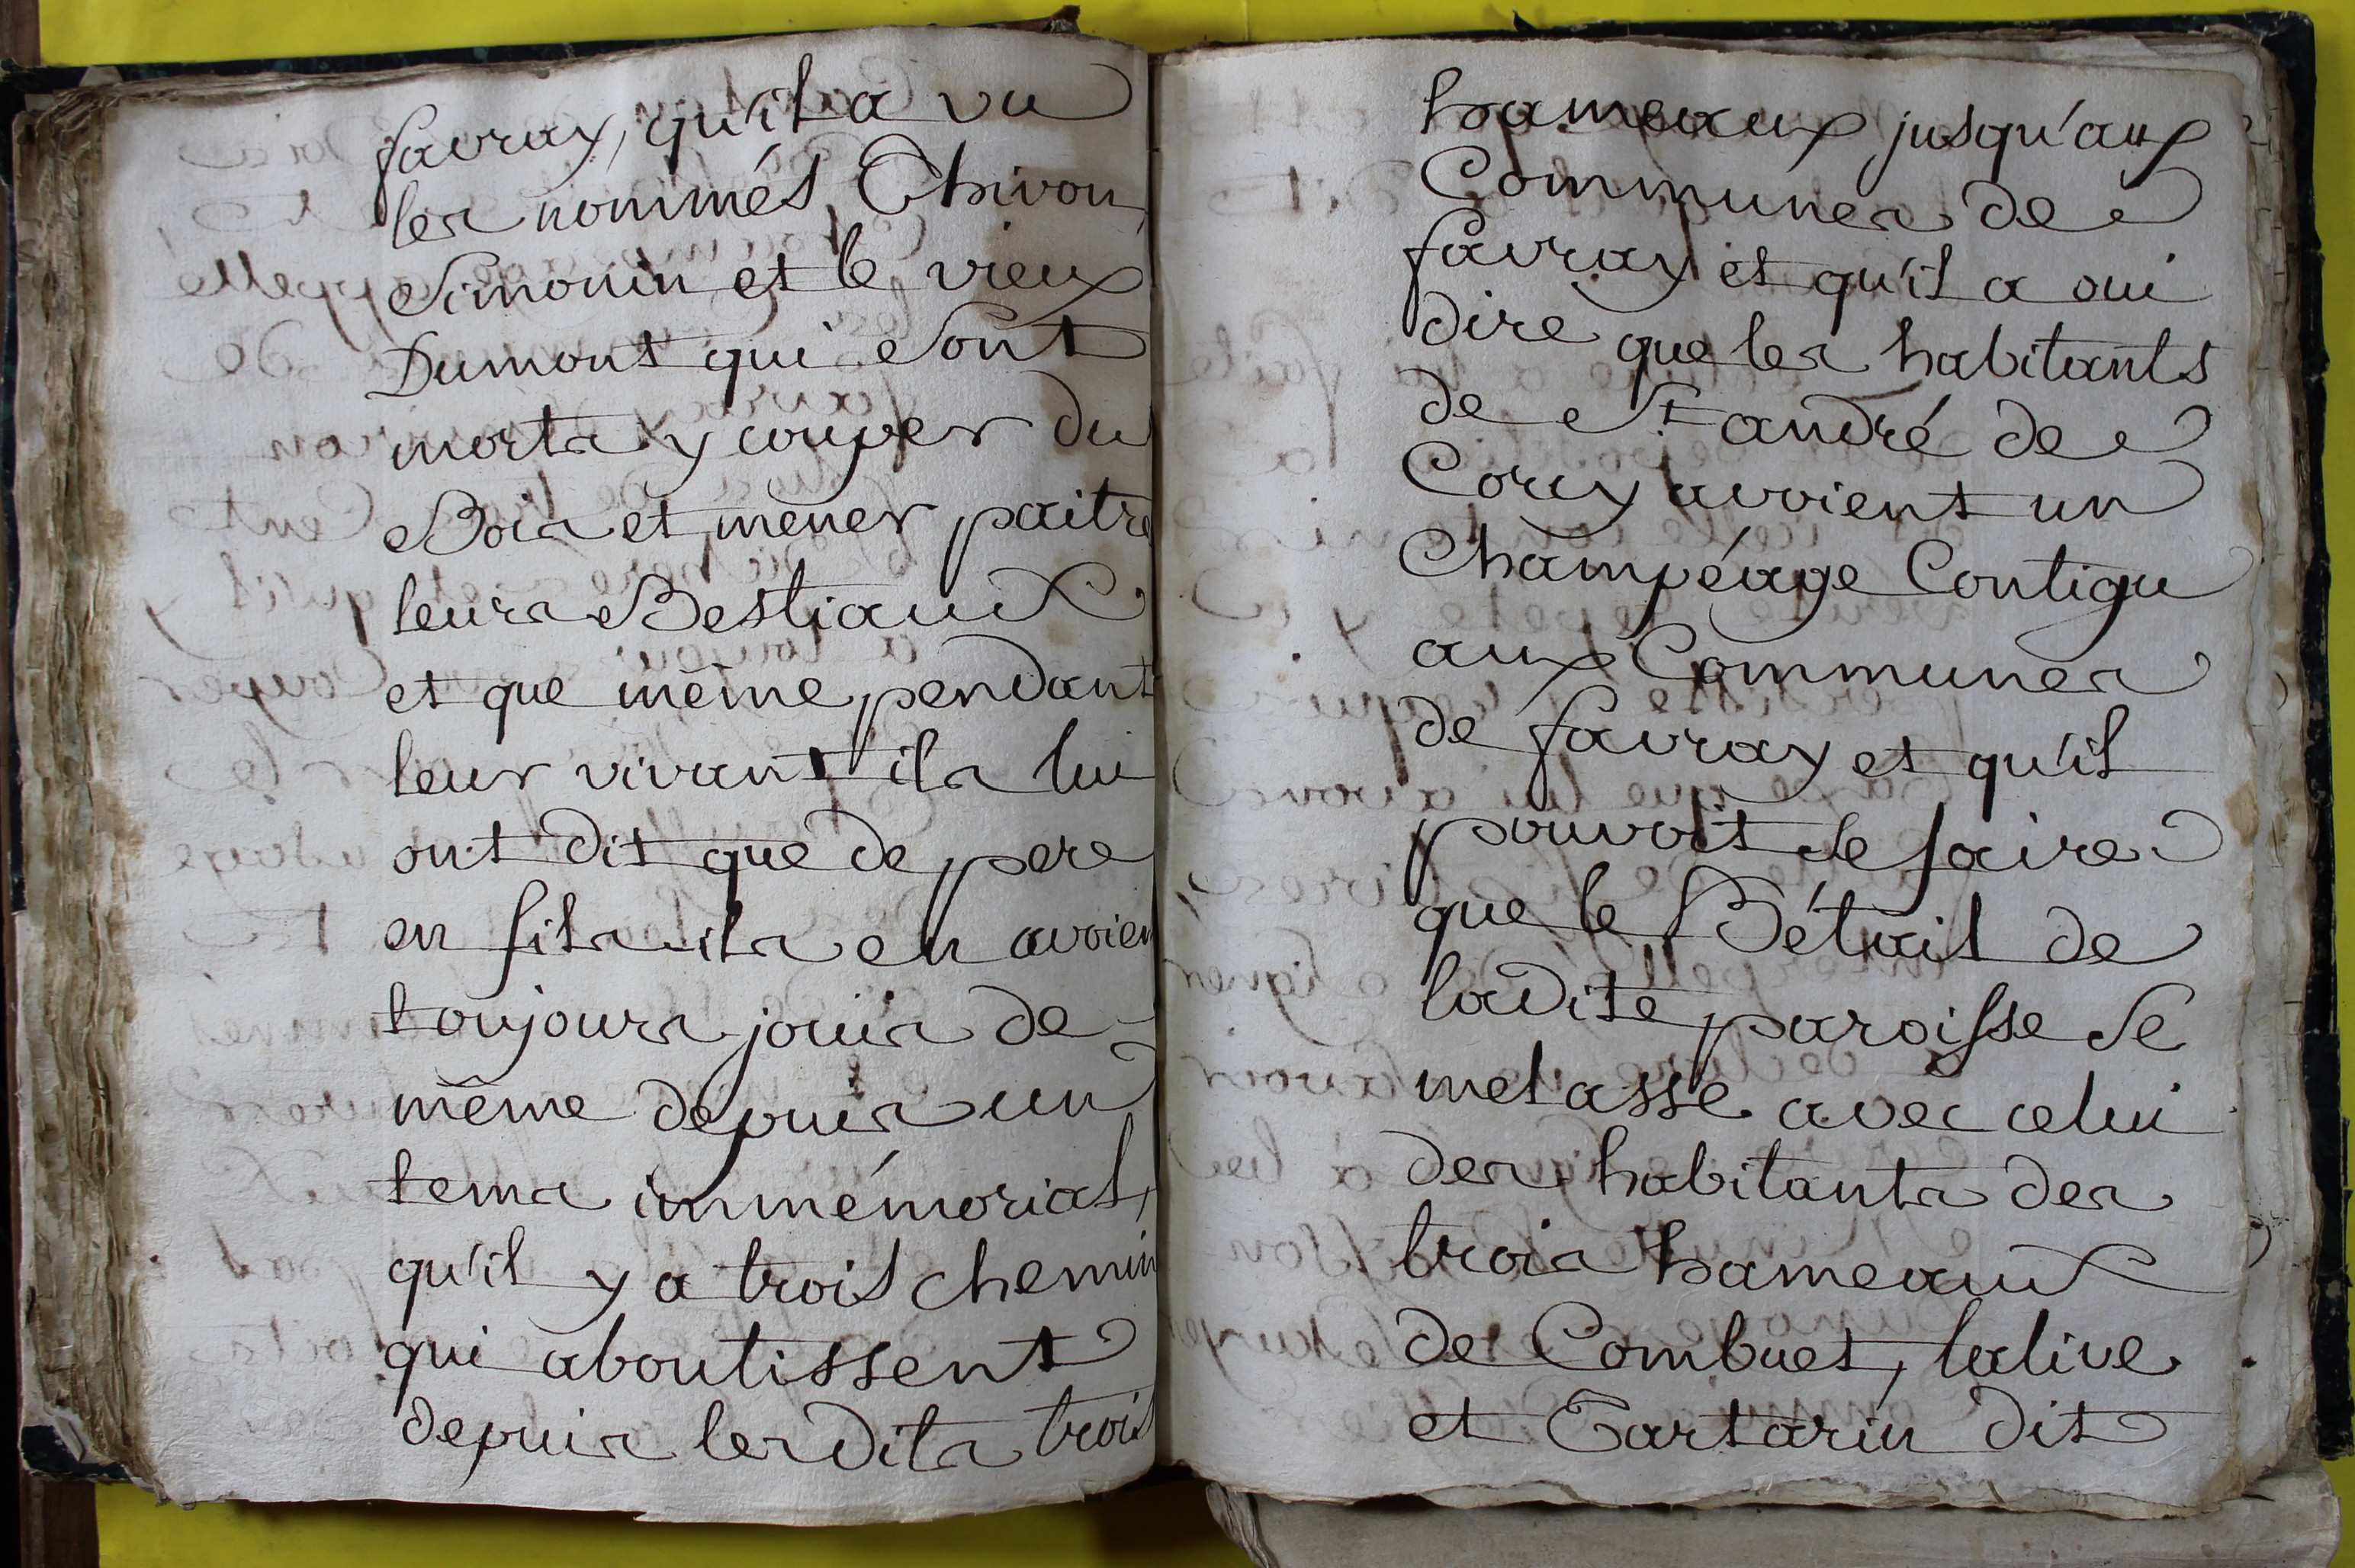 favray, qu'il a vu
les nommés Thivon
Simonin et le vieux
Dumont qui sont
morts y couper du
Bois et mener paitre
leurs Bestiaux
et que même pendant
leur vivant ils lui
ont dit que de pere
en fils ils en avoien
toujours jouis de
même depuis un
tems immémorial,
qu'il y a trois chemin
qui aboutissent
depuis lesdits trois
hameaux jusqu'aux
Communes de
favray et qu'il a oui
dire que les habitants
de St andré de
Corcy avoient un
Champéage Contigu
aux Communes
de favray et qu'il
pouvoit se faire
que le Bétail de
ladite paroisse se
melasse avec celui
des habitants des
trois hameaux
de Combuet, lalive
et Tartarin dit